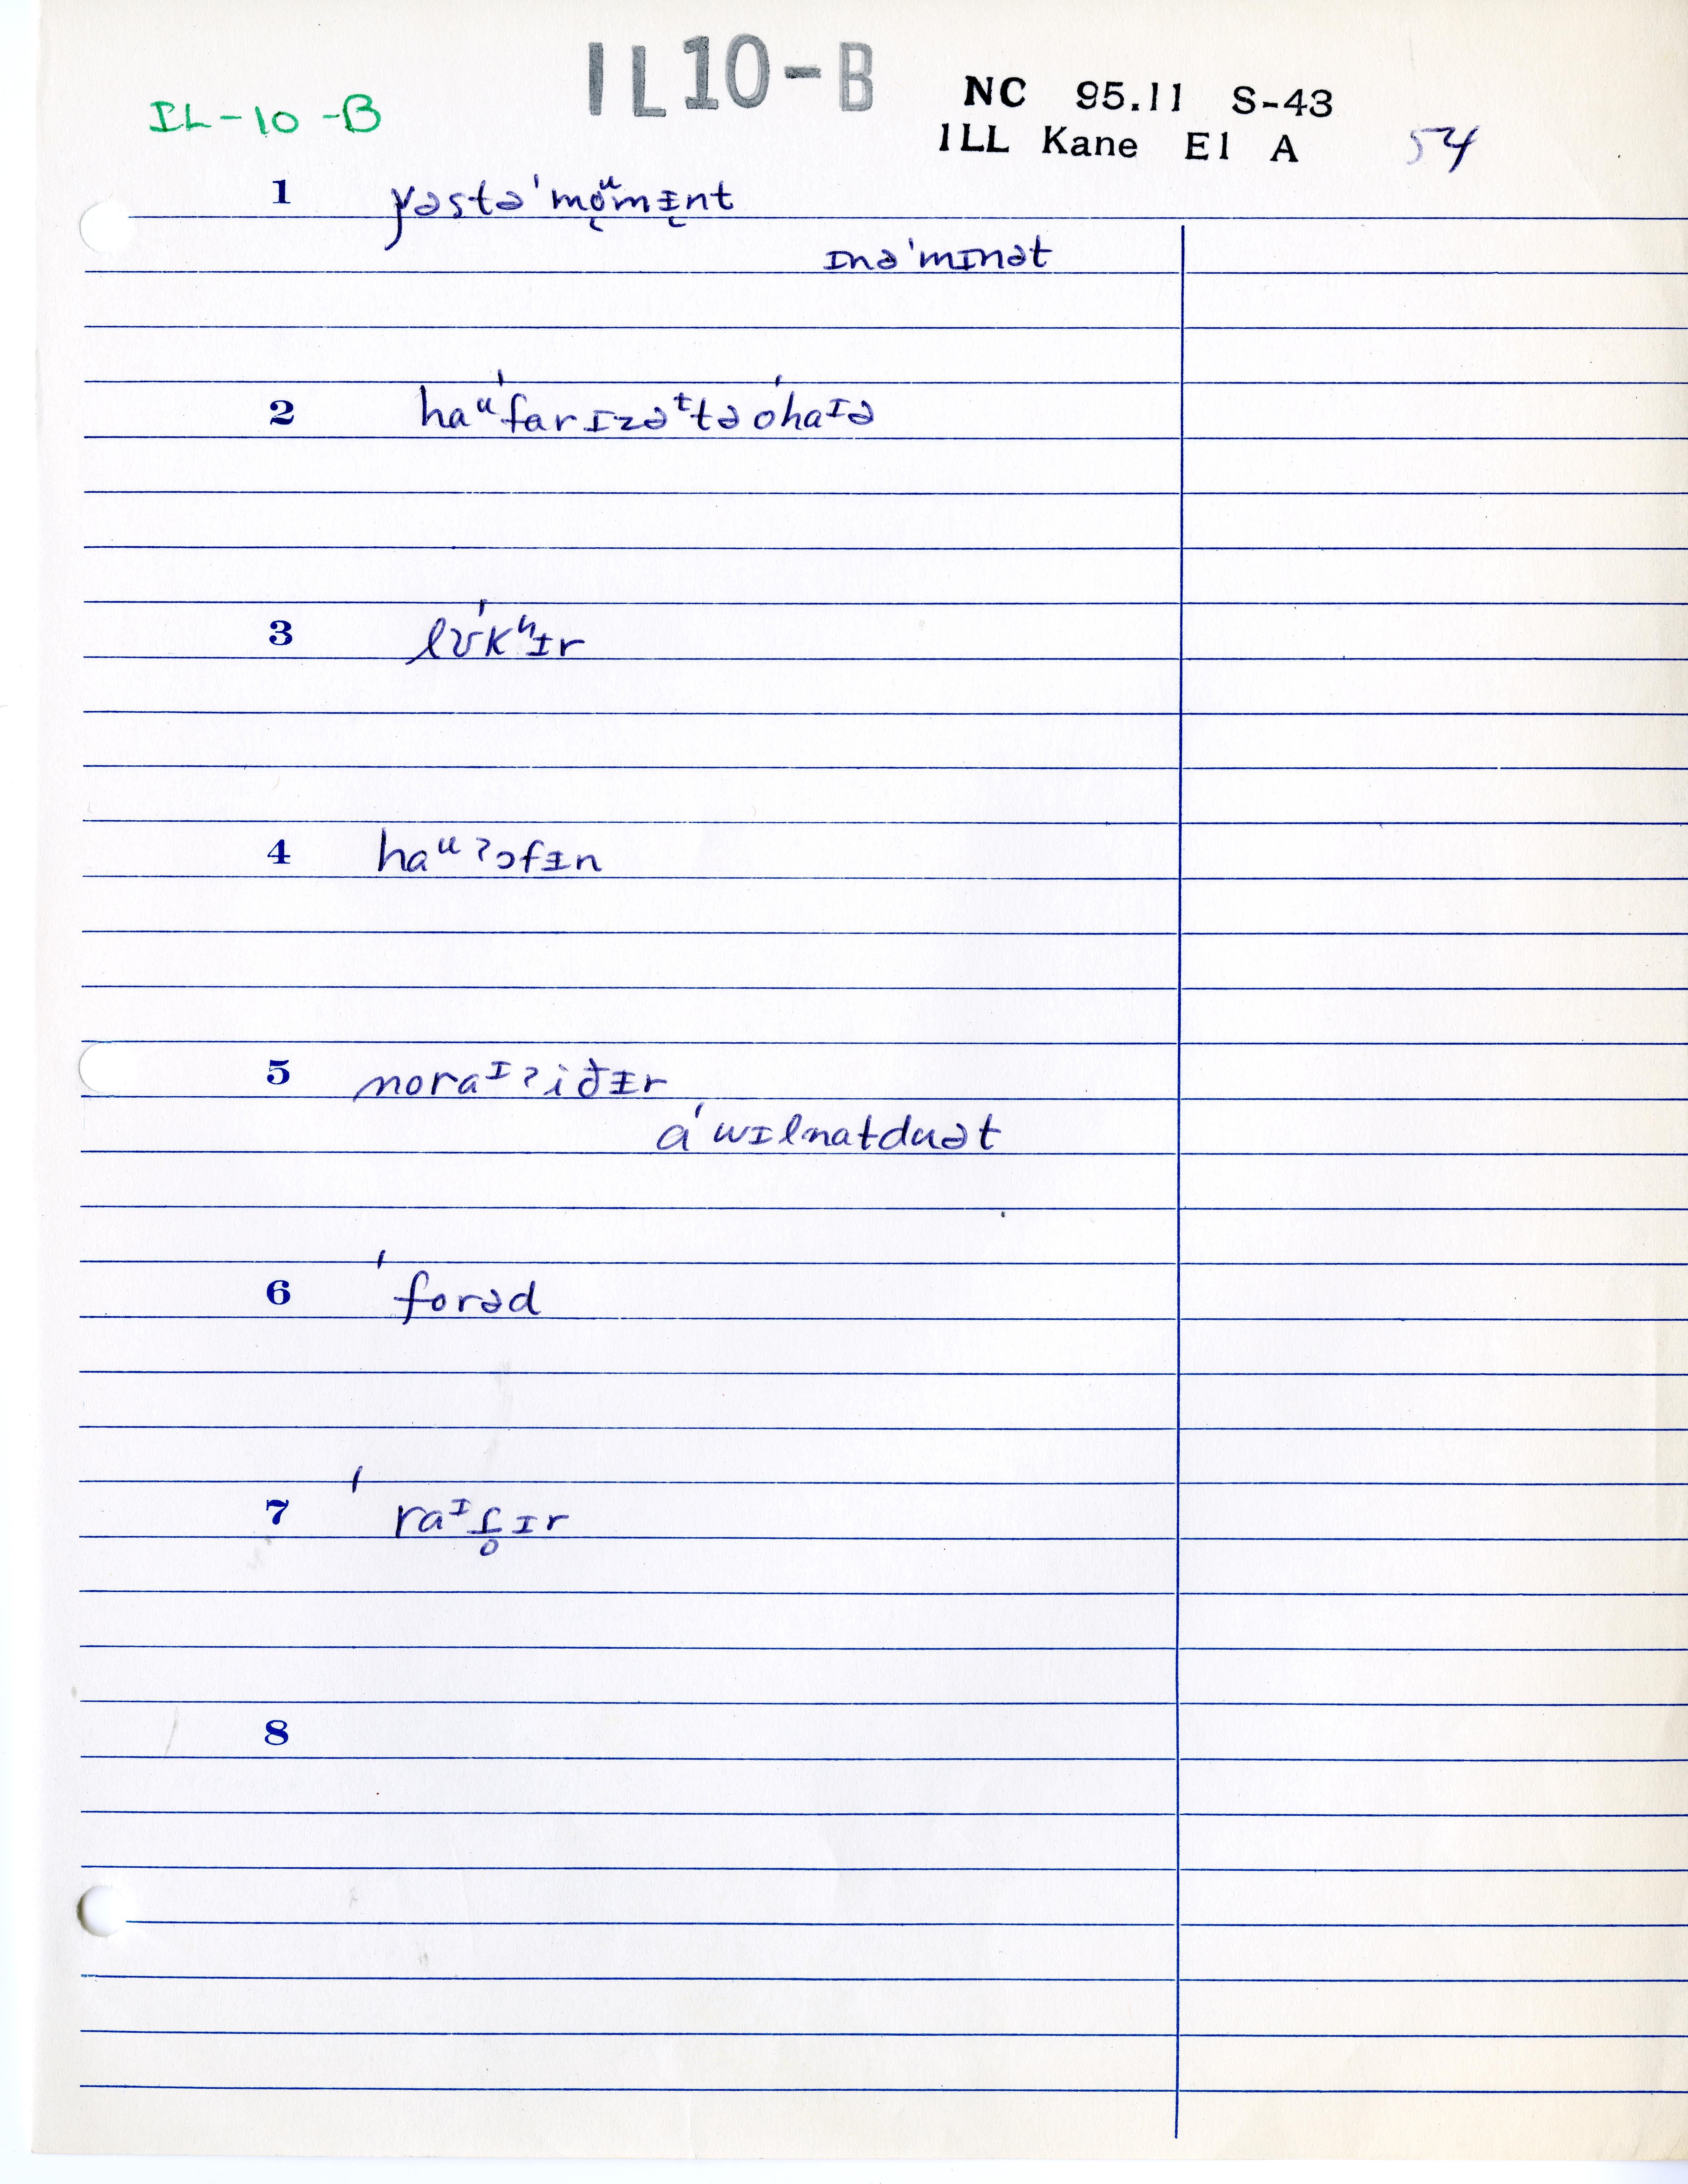 IL10-B
NC 95.11 S-43
IL-10-B
ILL Kane El A 54
1 yəstə'mo̜ᵘmɪ̵̜nt
ɪnə'mɪnət
2 haᵘ'farɪzəᵗtəo'haᶦə
3 lʊ'kʰɪ̵r
4 haᵘʔɔfɪ̵n
5 noraᶦʔiðɪ̵r
a'wɪlnatduət
6 'forəd
7 'raᶦf̬ɪr
8